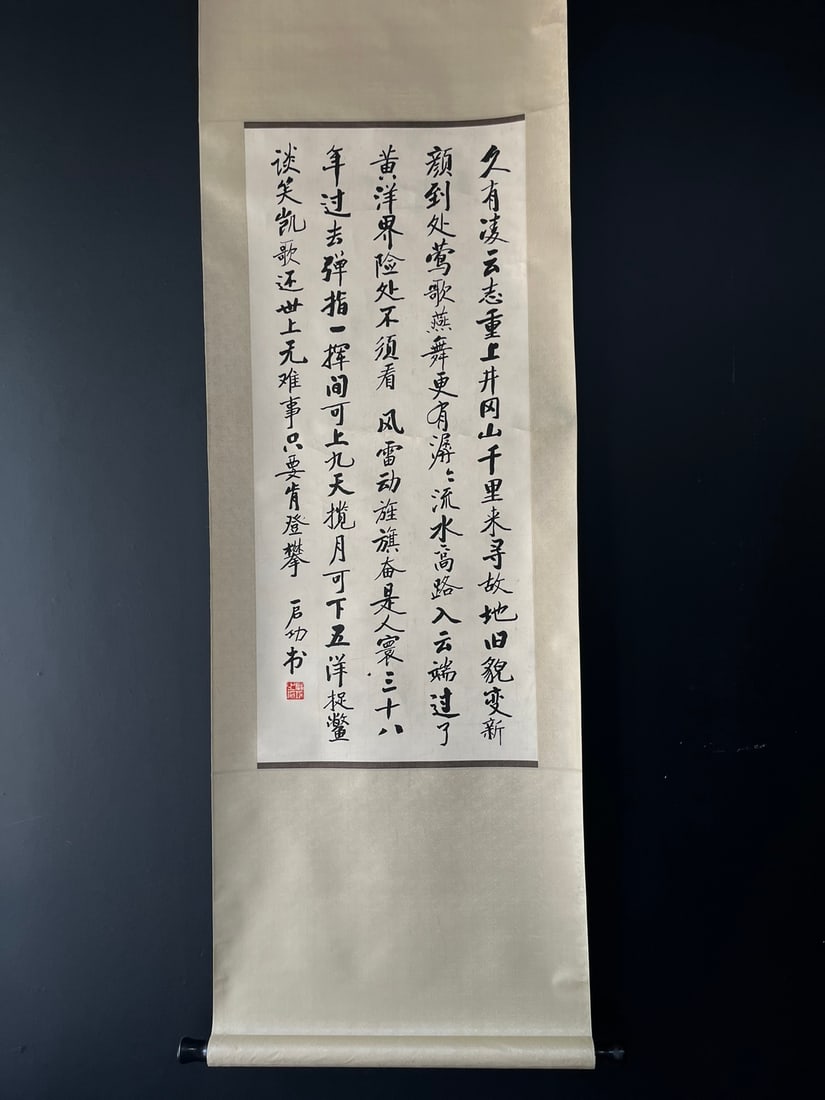 久有凌云志重上井冈山千里来寻故地旧貌变新
颜到处莺歌燕舞更有潺々流水高路入云端过了
黄洋界险处不须看 风雷动旌旗奋是人寰三十八
年过去弹指一挥间可上九天揽月可下五洋捉鳖
谈笑凯歌还世上无难事只要肯登攀 启功书